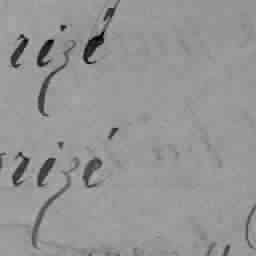 rizé
rizé